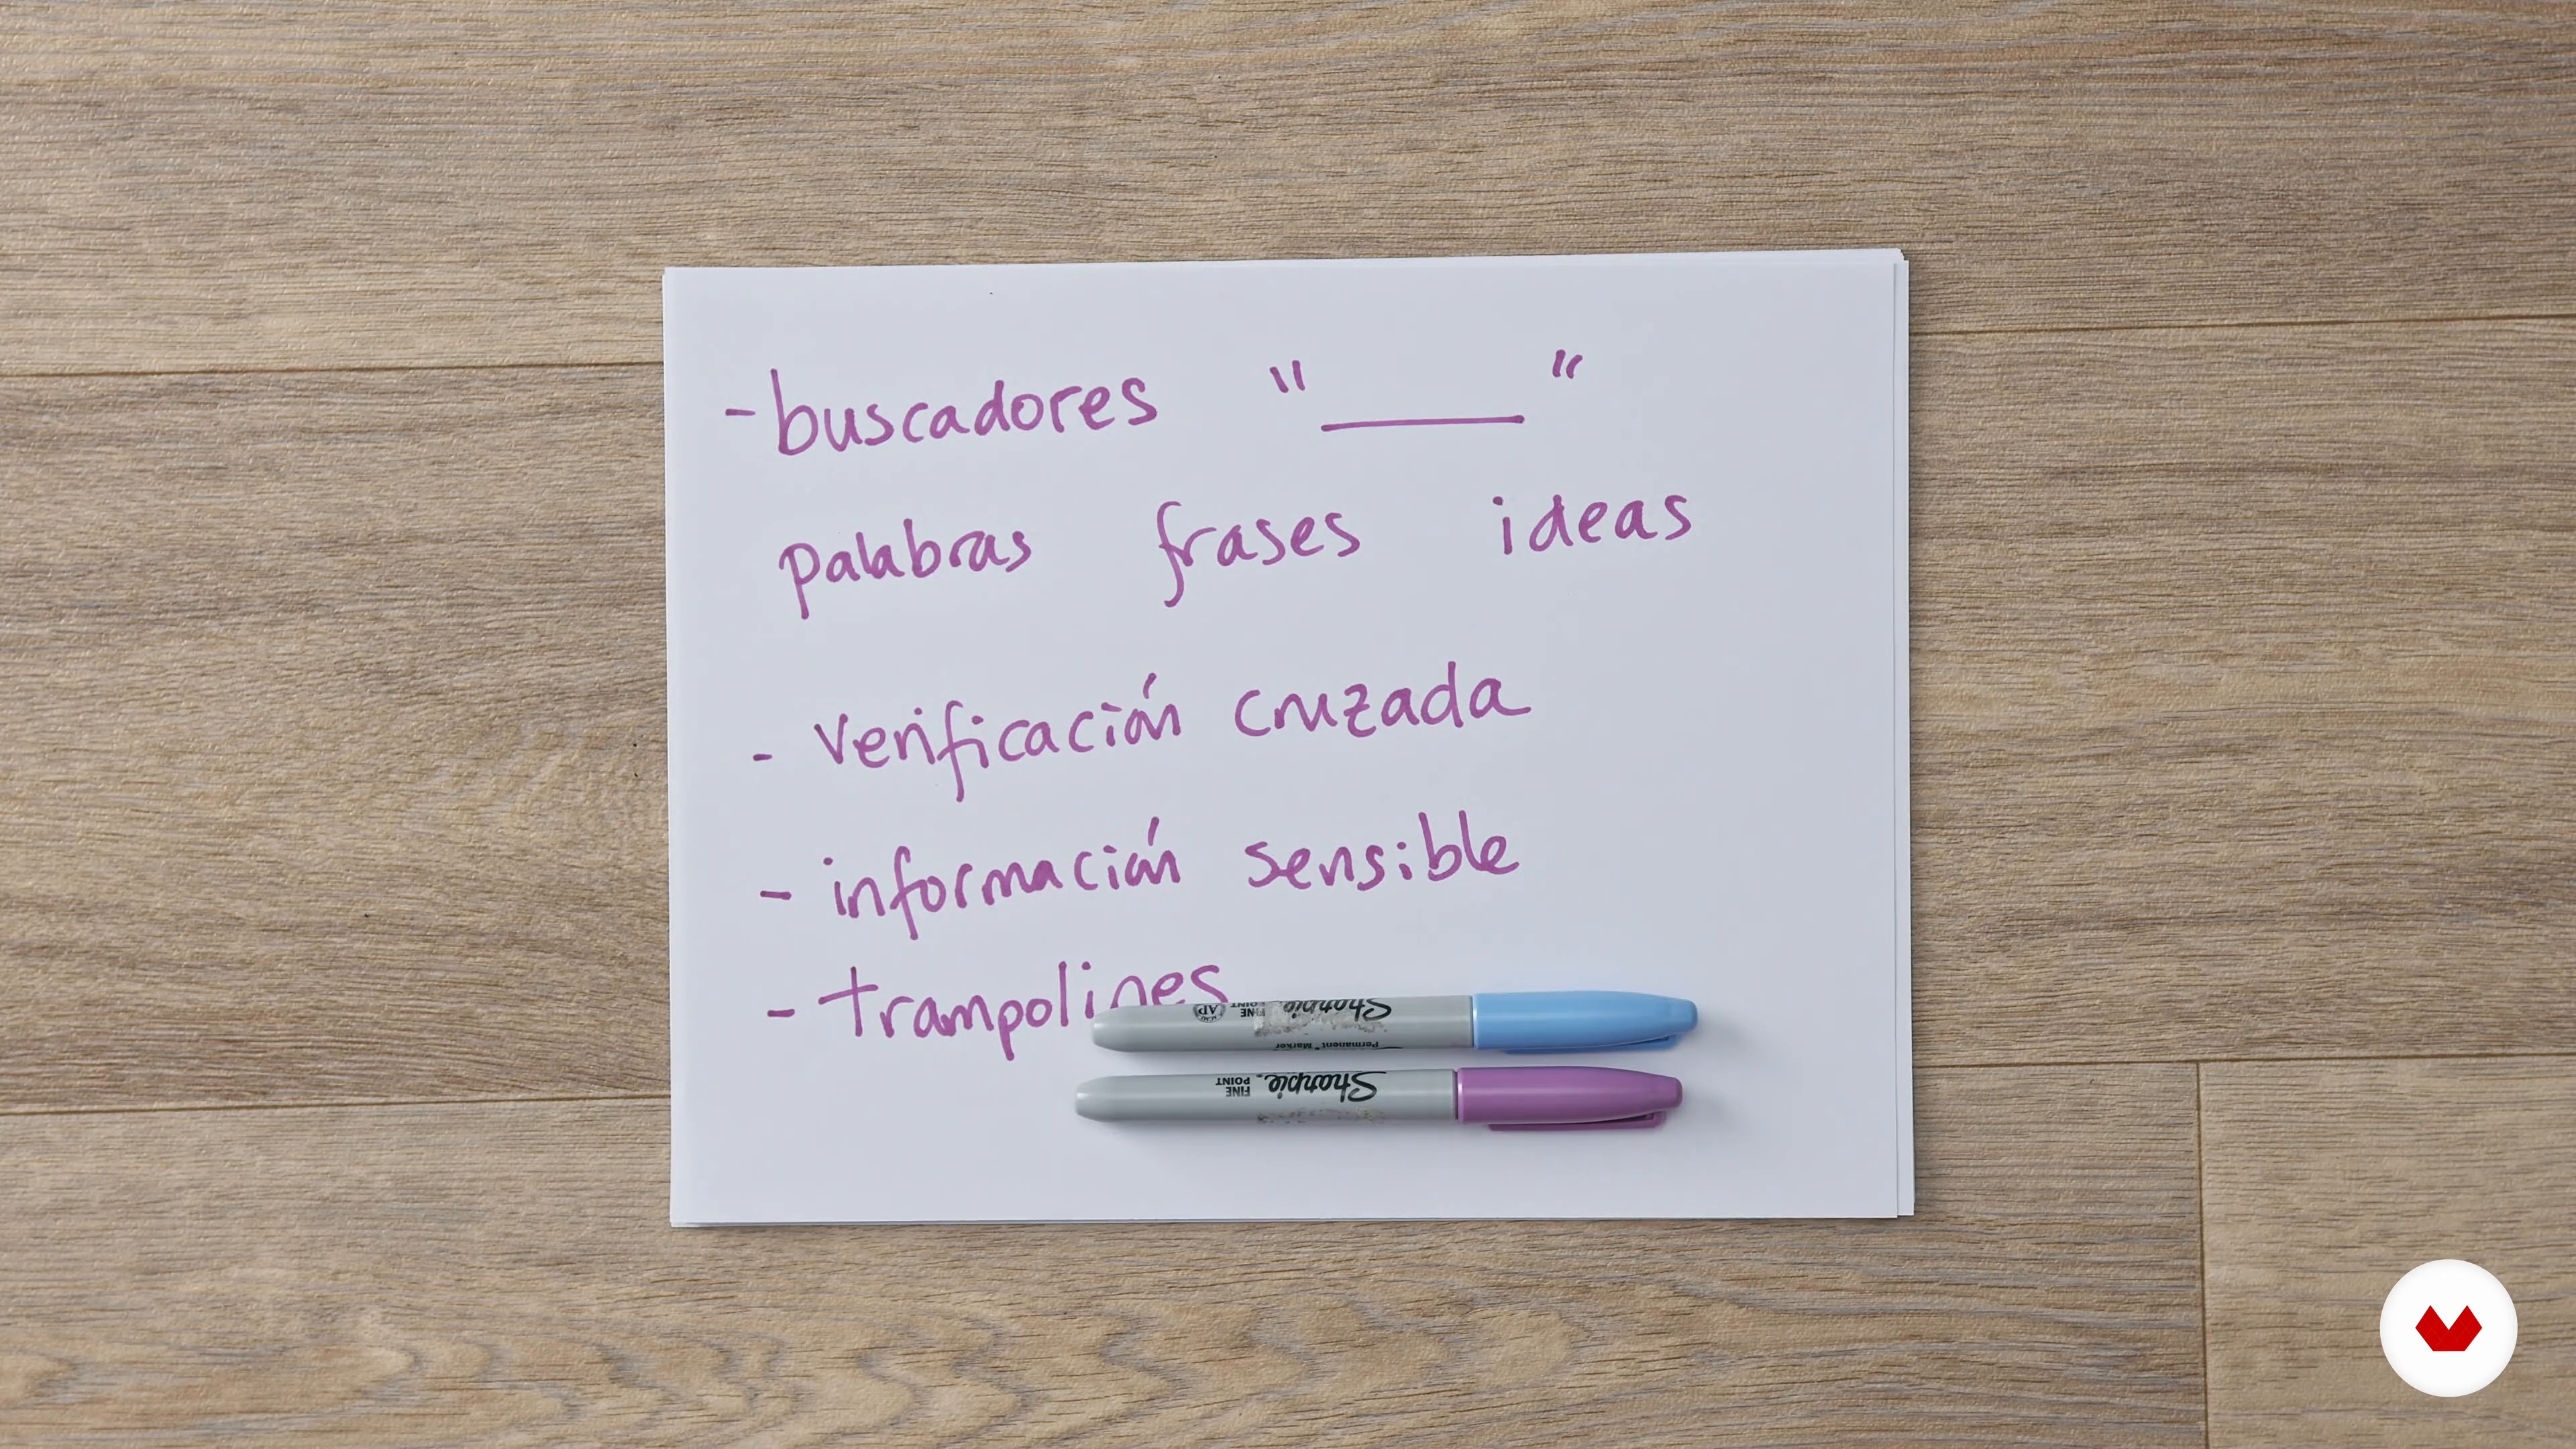 - buscadores "____"
palabras frases ideas
- verificación cruzada
- información sensible
- trampolines
Sharpie FINE POINT AP
Permanent Marker
Sharpie FINE POINT